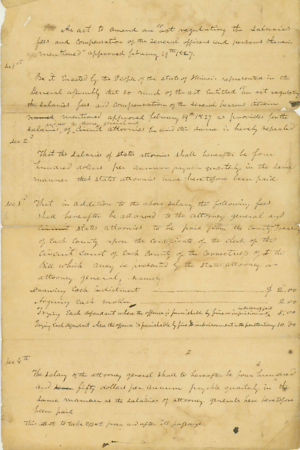 An act to amend an "act regulating the Salaries
fees and Compensation of the Several officers and persons therein
mentioned" approved February 19th 1827.
Sec 1st
Be it Enacted by the People of the State of Illinois represented in the
General Assembly that so much of the act entitled "an act regulating
the salaries fees and compensation of the several
mentioned approved February 19th 1827 as provides for the
salaries of Circuit attornies be and the same is hereby repealed
Sec 2
That the Salaries of States attornies shall hereafter be four
hundred dollars per annum payable quarterly in the same
manner that states attornies have heretofore been paid
Sec 3d
That in addition to the above salary the following fees
shall hereafter be allowed to the attorney general and
states attornies to be paid from the County
of each County upon the Certificate of the clerk of the
Circuit Court of each County
Bill which may be presented by the State attorney or
attorney general,
Drawing Each indictment
Arguing Each motion
Trying Each defendant where the offence is punishable by fine 5.00
Trying Each defendant where the offence is punishable by in the penitentiary 10.00
Sec 4th
The Salary of the attorney general shall hereafter be four hundred
and fifty dollars per annum payable quarterly in the
same manner as the salaries of attorney generals have heretofore
been paid
This act to take effect from and after its passage